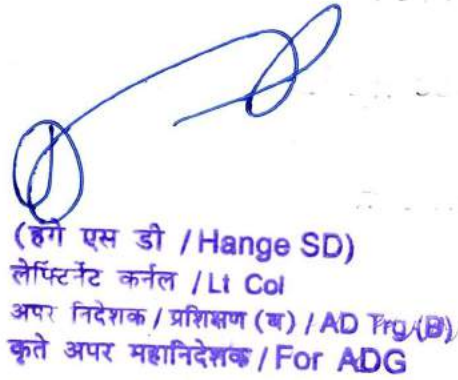 (हंगे एस डी / Hange SD)
लेफ्टिनेंट कर्नल / Lt Col
अपर निदेशक / प्रशिक्षण (ब) / AD Trg (B)
कृते अपर महानिदेशक / For ADG